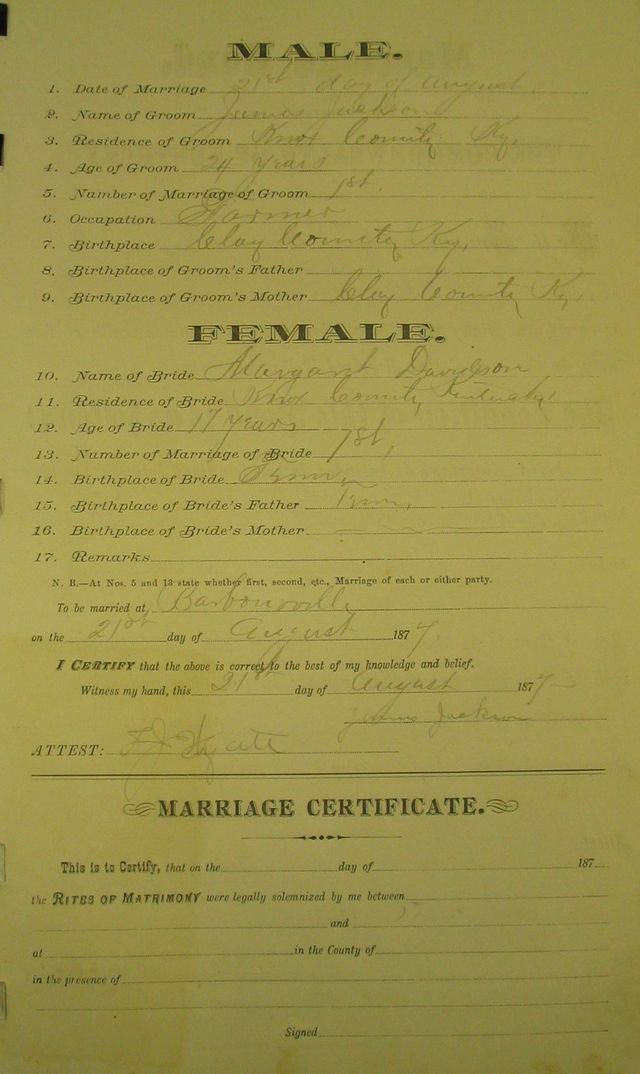 MALE.
1. Date of Marriage 21st day of August
2. Name of Groom James Jackson
3. Residence of Groom Knox County Ky.
4. Age of Groom 24 years
5. Number of Marriage of Groom 1st.
6. Occupation Farmer
7. Birthplace Clay County Ky,
8. Birthplace of Groom's Father
9. Birthplace of Groom's Mother Clay County Ky,
FEMALE.
10. Name of Bride Margaret Davidson
11. Residence of Bride Knox County Kentucky
12. Age of Bride 17 years
13. Number of Marriage of Bride 1st,
14. Birthplace of Bride Tenn,
15. Birthplace of Bride's Father Tenn,
16. Birthplace of Bride's Mother
17. Remarks
N. B.—At Nos. 5 and 13 state whether first, second, etc., Marriage of each or either party.
To be married at Barbourville
on the 21st day of August 1877.
I CERTIFY that the above is correct to the best of my knowledge and belief.
Witness my hand, this 21st day of August 1877
James Jackson
ATTEST: Wyatt
MARRIAGE CERTIFICATE.
This is to Certify, that on the day of 187
the RITES OF MATRIMONY were legally solemnized by me between
and
at in the County of
in the presence of
Signed